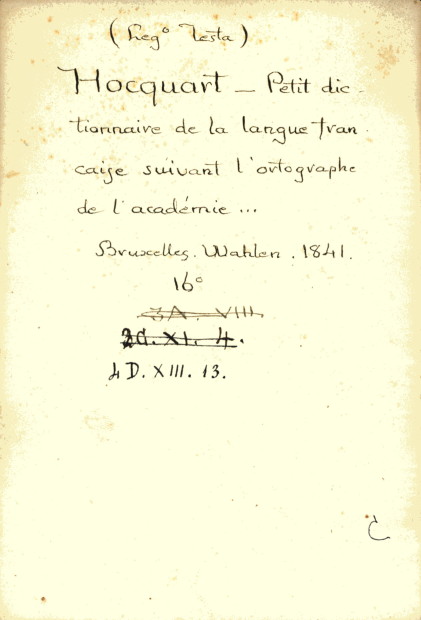 (Leg° Testa)
Hocquart _ Petit dic-
tionnaire de la langue fran-
caise suivant l'ortographe
de l'académie ...
Bruxelles. Wahlen. 1841.
16°
3A. VIII.
2d. XI. 4.
4 D. XIII. 13.
C